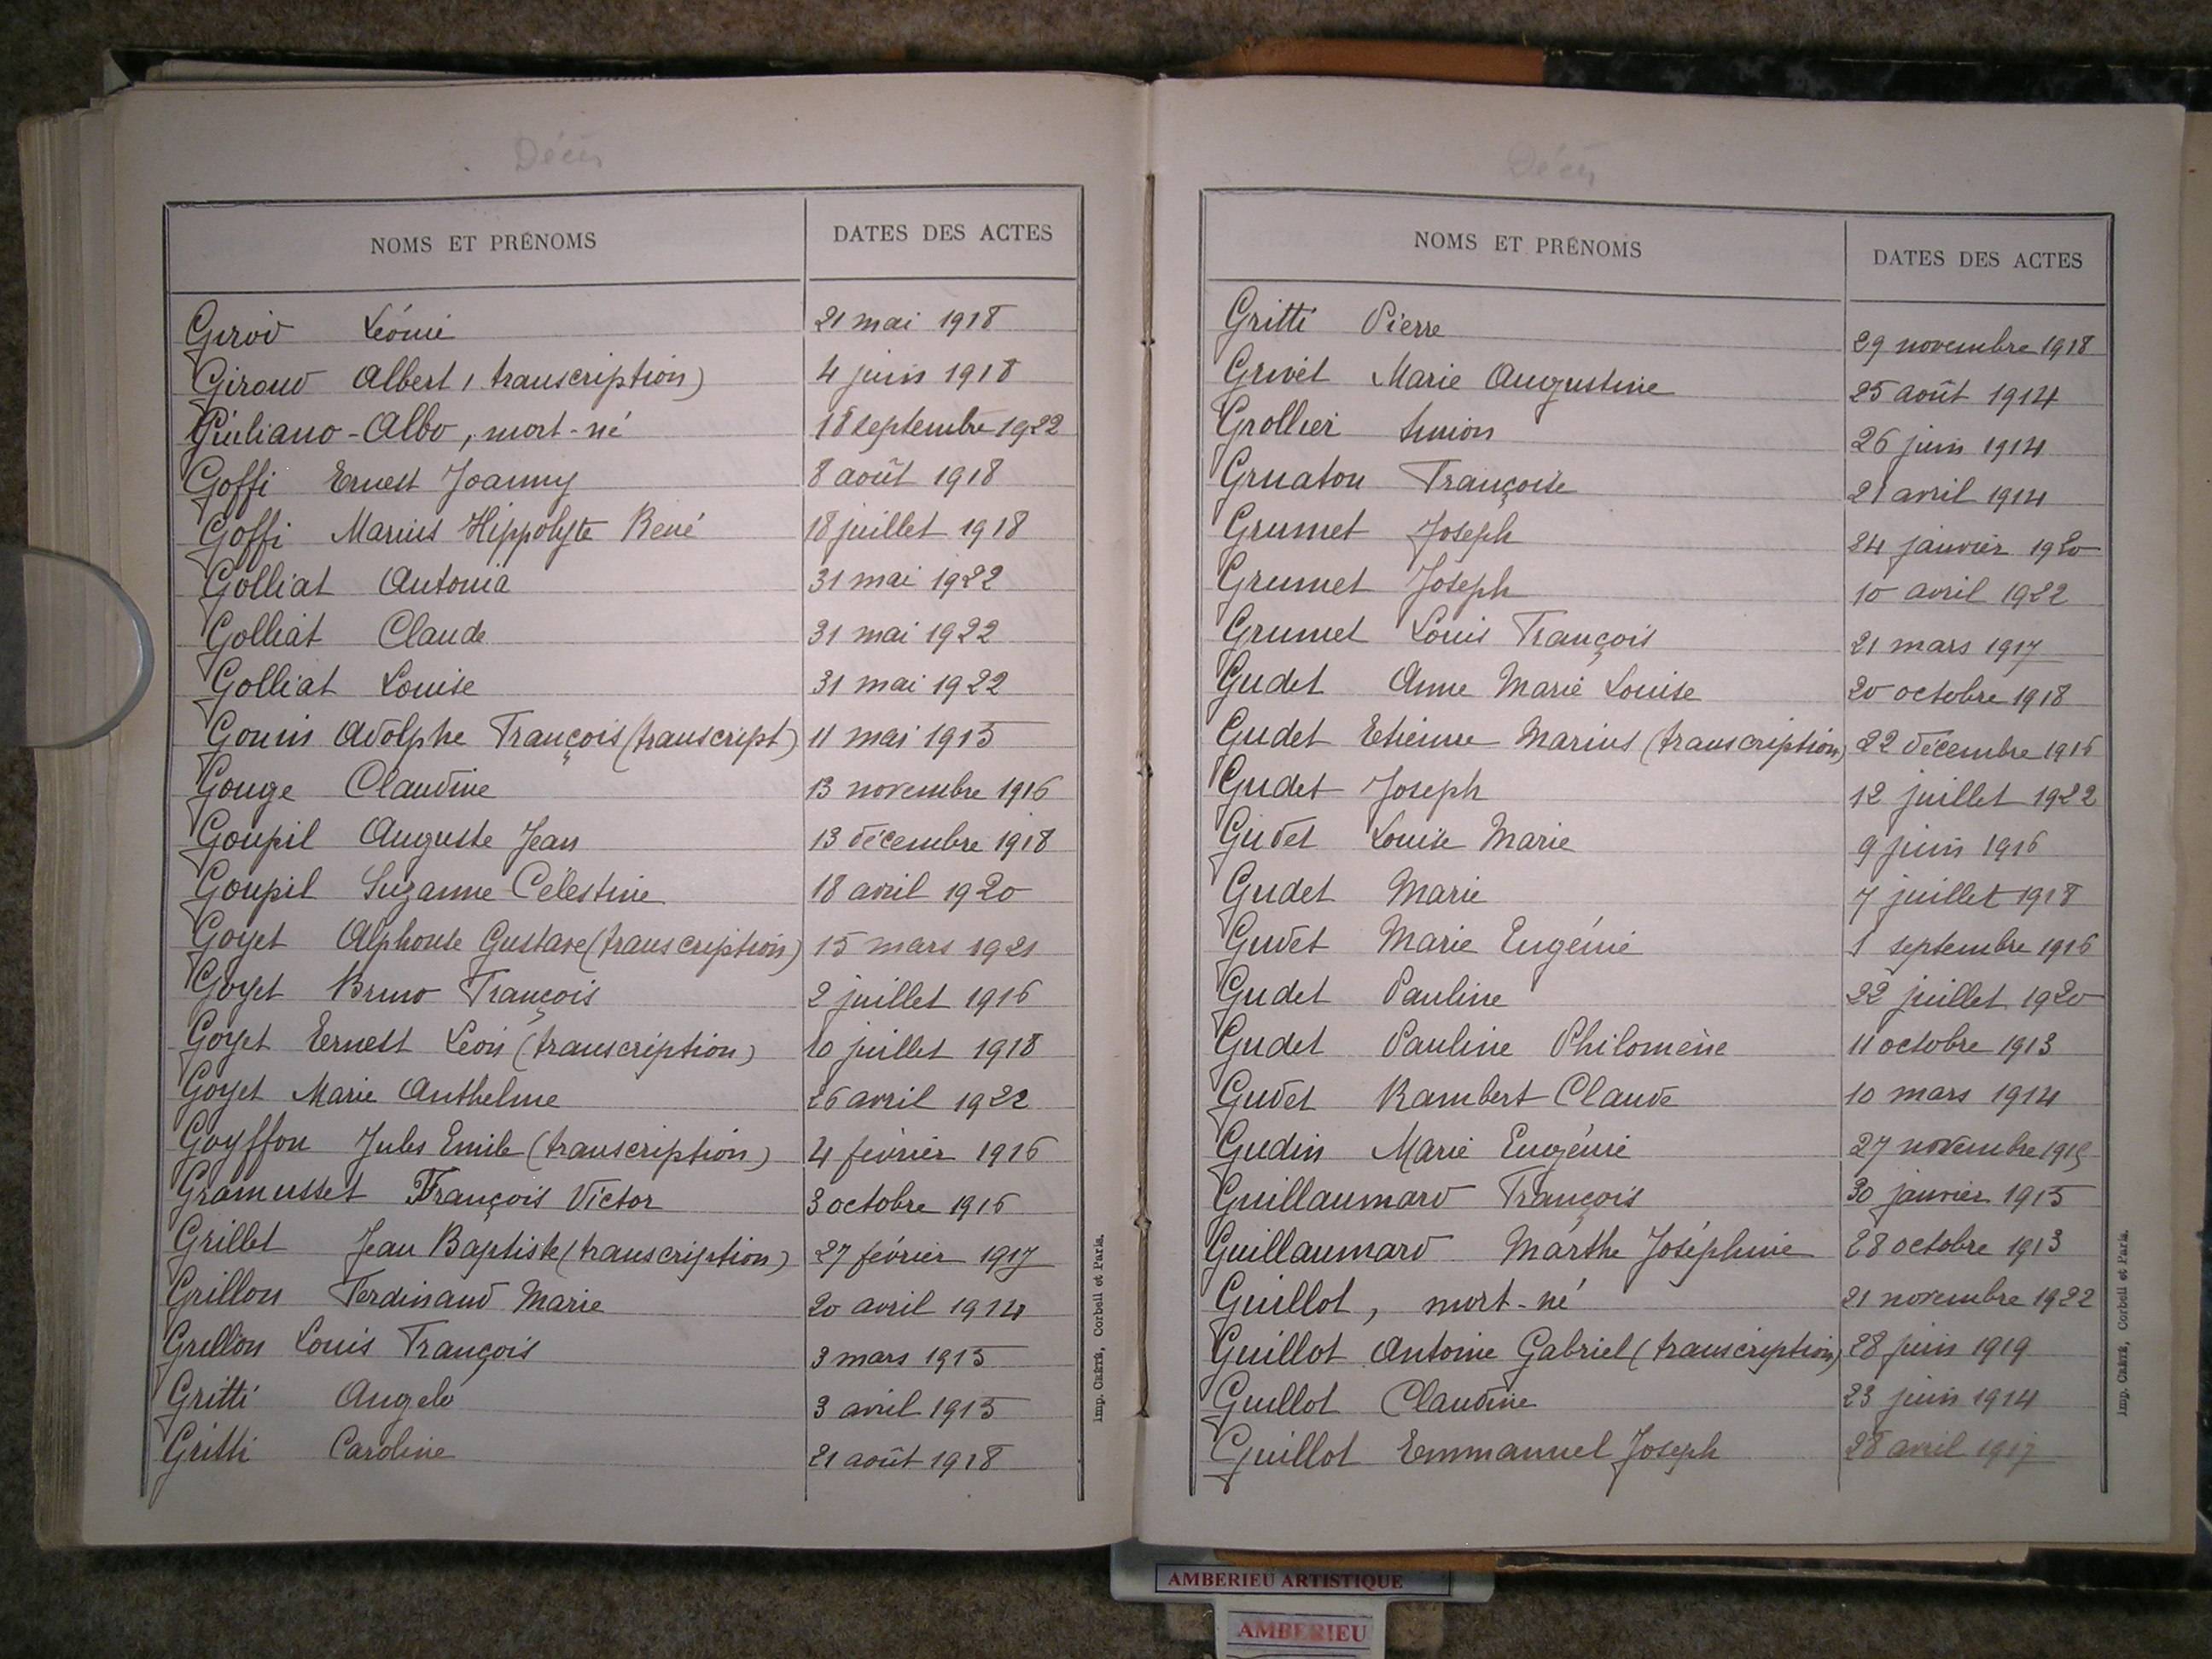 Décès
NOMS ET PRÉNOMS DATES DES ACTES
Girod Léonie 21 mai 1918
Giroud Albert (transcription) 4 juin 1918
Giuliano-Albo, mort-né 18 septembre 1922
Goffi Ernest Joanny 8 août 1918
Goffi Marius Hippolyte René 18 juillet 1918
Golliat Antonia 31 mai 1922
Golliat Claude 31 mai 1922
Golliat Louise 31 mai 1922
Gonin Adolphe François (transcript) 11 mai 1915
Gouge Claudine 13 novembre 1916
Goupil Auguste Jean 13 décembre 1918
Goupil Suzanne Célestine 18 avril 1920
Goyet Alphonse Gustave (transcription) 15 mars 1921
Goyet Bruno François 2 juillet 1916
Goyet Ernest Léon (transcription) 10 juillet 1918
Goyet Marie Anthelme 26 avril 1922
Goyffon Jules Emile (transcription) 4 février 1916
Gramusset François Victor 3 octobre 1916
Grillet Jean Baptiste (transcription) 27 février 1917
Grillon Ferdinand Marie 20 avril 1914
Grillon Louis François 3 mars 1915
Gritti Angelo 3 avril 1915
Gritti Caroline 21 août 1918
Imp. CRÉTÉ, Corbeil et Paris.
Décès
NOMS ET PRÉNOMS DATES DES ACTES
Gritti Pierre 29 novembre 1918
Grivet Marie Augustine 25 août 1914
Grollier Simon 26 juin 1914
Gruaton Françoise 21 avril 1914
Grumet Joseph 24 janvier 1920
Grumet Joseph 10 avril 1922
Grumet Louis François 21 mars 1917
Gudet Anne Marie Louise 20 octobre 1918
Gudet Etienne Marius (transcription) 22 décembre 1916
Gudet Joseph 12 juillet 1922
Gudet Louise Marie 9 juin 1916
Gudet Marie 7 juillet 1918
Gudet Marie Eugénie 1 septembre 1916
Gudet Pauline 22 juillet 1920
Gudet Pauline Philomène 11 octobre 1913
Gudet Rambert Claude 10 mars 1914
Gudin Marie Eugénie 27 novembre 1915
Guillaumard François 30 janvier 1915
Guillaumard Marthe Joséphine 28 octobre 1913
Guillot, mort-né 21 novembre 1922
Guillot Antoine Gabriel (transcription) 28 juin 1919
Guillot Claudine 23 juin 1914
Guillot Emmanuel Joseph 28 avril 1917
Imp. CRÉTÉ, Corbeil et Paris.
AMBERIEU ARTISTIQUE
AMBERIEU